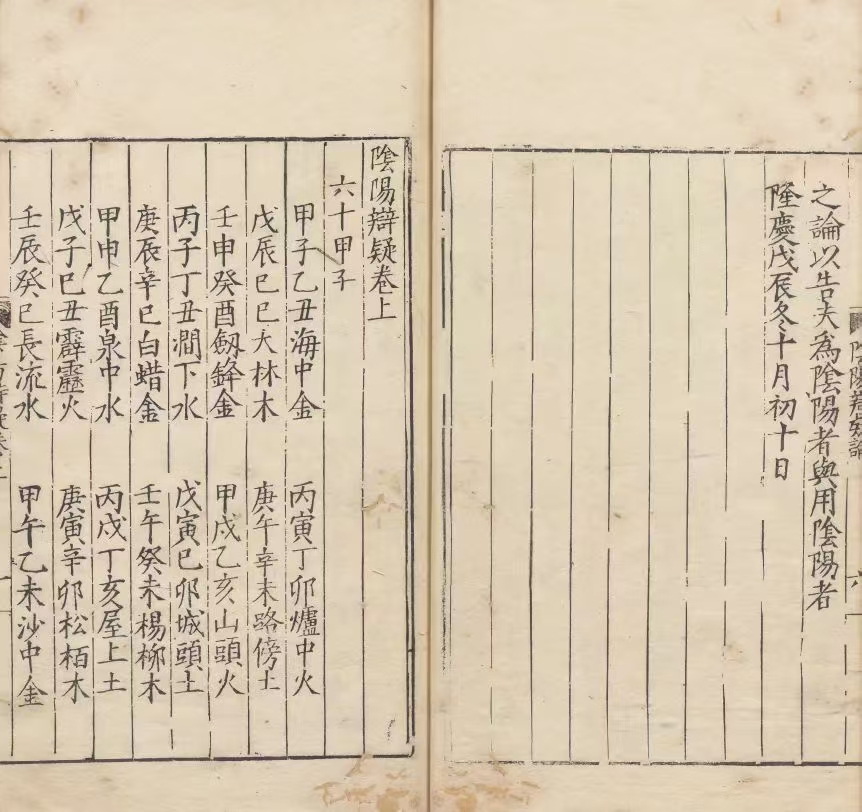 陰陽辯疑論
六
之論以告夫為陰陽者與用陰陽者
隆慶戊辰冬十月初十日
陰陽辯疑卷上
六十甲子
甲子乙丑海中金　丙寅丁卯爐中火
戊辰己巳大林木　庚午辛未路傍土
壬申癸酉劔鋒金　甲戌乙亥山頭火
丙子丁丑澗下水　戊寅己卯城頭土
庚辰辛巳白蜡金　壬午癸未楊柳木
甲申乙酉泉中水　丙戌丁亥屋上土
戊子己丑霹靂火　庚寅辛卯松栢木
壬辰癸巳長流水　甲午乙未沙中金